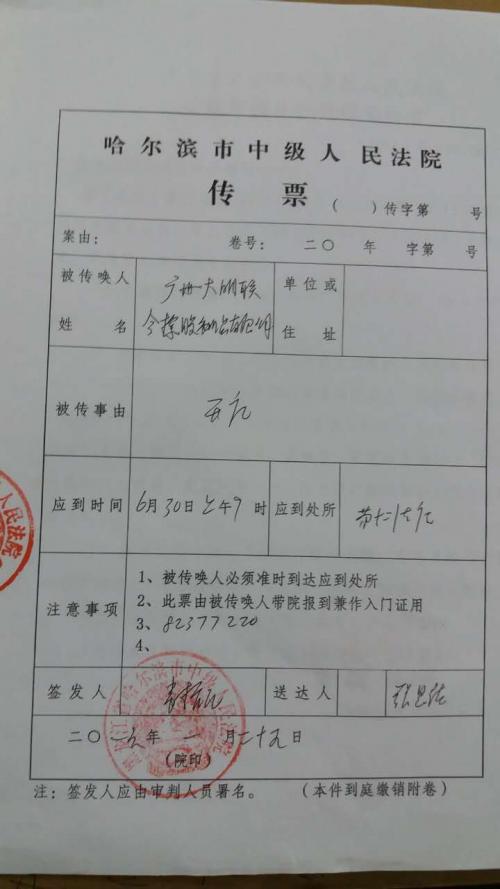 哈尔滨市中级人民法院
传票
( )传字第 号
案由: 卷号: 二〇 年 字第 号
被传唤人姓名 广州大明联 单位或住址
股 公司
被传事由 开庭
应到时间 6月30日上午9时 应到处所 第十二法庭
注意事项
1、被传唤人必须准时到达应到处所
2、此票由被传唤人带院报到兼作入门证用
3、82377220
4、
签发人 送达人 张
二〇一六年 一月二十九日
(院印)
黑龙江省哈尔滨市中级人民法院
人民法院
注:签发人应由审判人员署名。 (本件到庭缴销附卷)